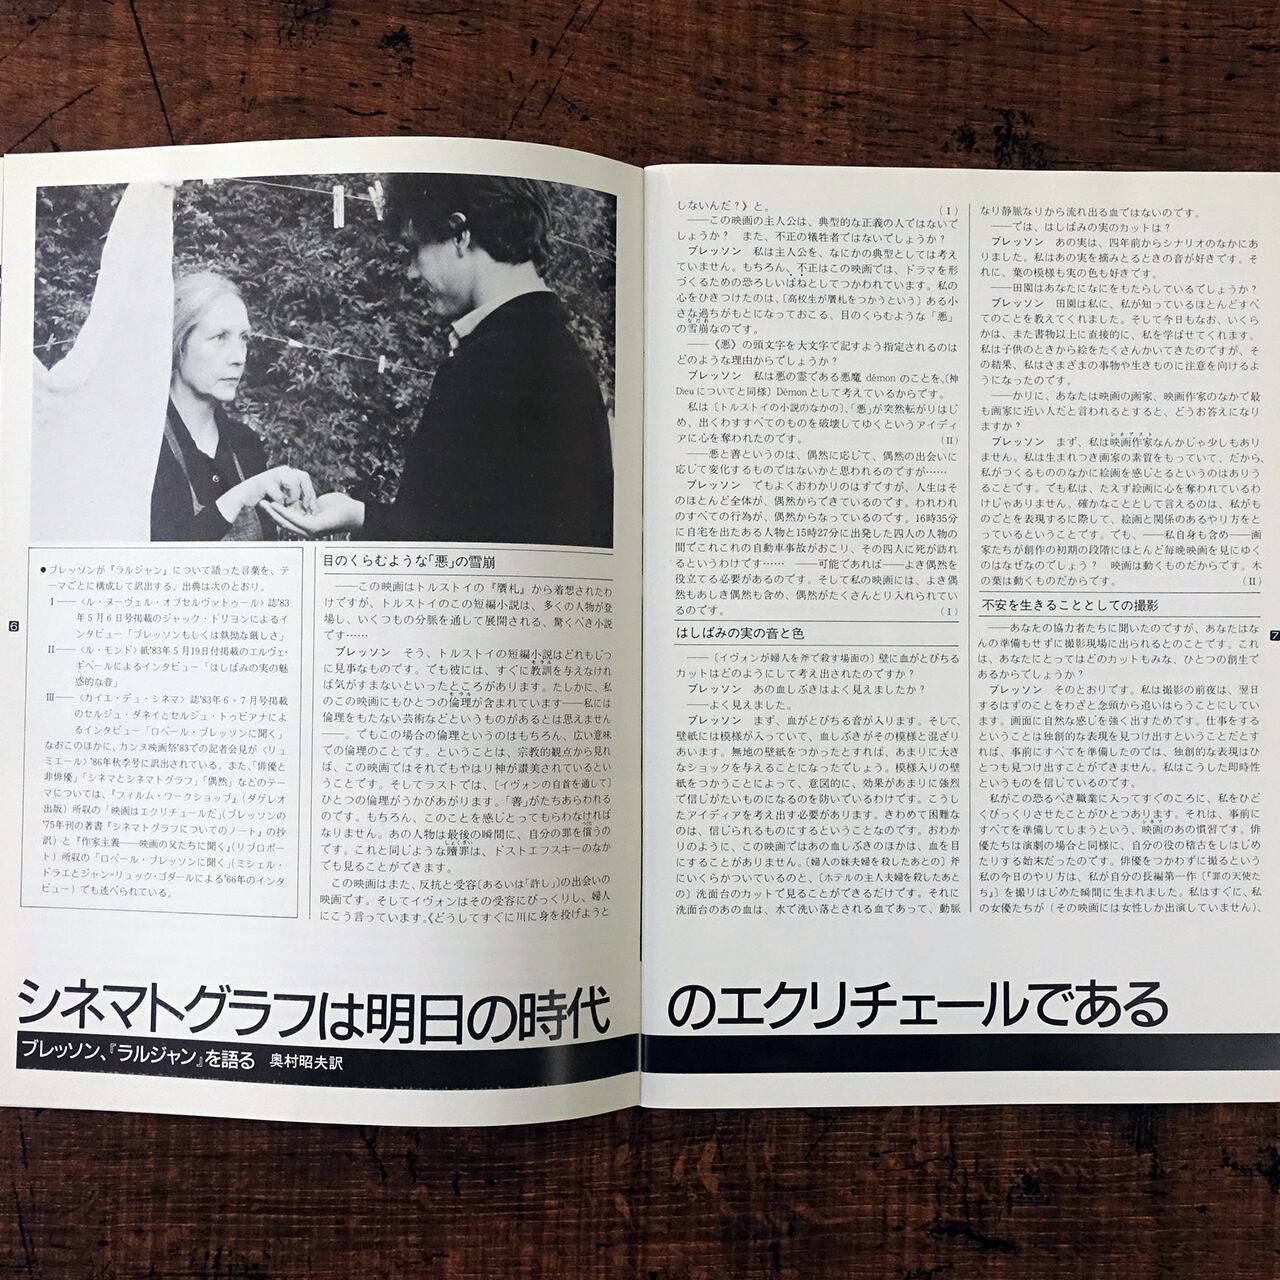 ●ブレッソンが『ラルジャン』について語った言葉を、テ
ーマごとに構成して訳出する。出典は次のとおり。
Ⅰ──〈ル・ヌーヴェル・オプセルヴァトゥール〉誌'83
年5月6日号掲載のジャック・ドリヨンによるイ
ンタビュー「ブレッソンもしくは執拗な厳しさ」
Ⅱ──〈ル・モンド〉紙'83年5月19日付掲載のエルヴェ・
ギベールによるインタビュー「はしばみの実の魅
惑的な音」
Ⅲ──〈カイエ・デュ・シネマ〉誌'83年6・7月号掲載
のセルジュ・ダネイとセルジュ・トゥビアナによ
るインタビュー「ロベール・ブレッソンに聞く」
なおこのほかに、カンヌ映画祭'83での記者会見が〈リュ
ミエール〉'86年秋季号に訳出されている。また、「俳優と
非俳優」「シネマとシネマトグラフ」「偶然」などのテー
マについては、『フィルム・ワークショップ』(ダゲレオ
出版)所収の「映画はエクリチュールだ」(ブレッソンの
'75年刊の著書『シネマトグラフについてのノート』の抄
訳)と『作家主義──映画の父たちに聞く』(リブロポー
ト)所収の「ロベール・ブレッソンに聞く」(ミシェル・
ドラエとジャン・リュック・ゴダールによる'66年のインタ
ビュー)でも述べられている。
6
目のくらむような「悪」の雪崩
──この映画はトルストイの『贋札』から着想されたわ
けですが、トルストイのこの短編小説は、多くの人物が登
場し、いくつもの分脈を通して展開される、驚くべき小説
です……
ブレッソン　そう、トルストイの短編小説はどれもじつ
に見事なものです。でも彼には、すぐに教訓を与えなけれ
ば気がすまないといったところがあります。たしかに、私
のこの映画にもひとつの倫理が含まれています──私には
倫理をもたない芸術などというものがあるとは思えません
──。でもこの場合の倫理というのはもちろん、広い意味
での倫理のことです。ということは、宗教的観点から見れ
ば、この映画ではそれでもやはり神が讃美されているとい
うことです。そしてラストでは、[イヴォンの自首を通して]
ひとつの倫理がうかびあがります。「善」がたちあらわれる
のです。もちろん、このことを感じとってもらわなければ
なりません。あの人物は最後の瞬間に、自分の罪を償うの
です。これと同じような贖罪は、ドストエフスキーのなか
でも見ることができます。
この映画はまた、反抗と受容(あるいは「許し」)の出会いの
映画です。そしてイヴォンはその受容にびっくりし、婦人
にこう言っています。《どうしてすぐに川に身を投げようと
しないんだ?》と。　(Ⅰ)
──この映画の主人公は、典型的な正義の人ではないで
しょうか?　また、不正の犠牲者ではないでしょうか?
ブレッソン　私は主人公を、なにかの典型としては考え
ていません。もちろん、不正はこの映画では、ドラマを形
づくるための恐ろしいばねとしてつかわれています。私の
心をひきつけたのは、[高校生が贋札をつかうという]ある小
さな過ちがもとになっておこる、目のくらむような「悪」
の雪崩なのです。
──《悪》の頭文字を大文字で記すよう指定されるのは
どのような理由からでしょうか?
ブレッソン　私は悪の霊である悪魔 démon のことを、[神
Dieu についてと同様] Démonとして考えているからです。
私は[トルストイの小説のなかの]、「悪」が突然転がりはじ
め、出くわすすべてのものを破壊してゆくというアイディ
アに心を奪われたのです。　(Ⅱ)
──悪と善というのは、偶然に応じて、偶然の出会いに
応じて変化するものではないかと思われるのですが……
ブレッソン　でもよくおわかりのはずですが、人生はそ
のほとんど全体が、偶然からできているのです。われわれ
のすべての行為が、偶然からなっているのです。16時35分
に自宅を出たある人物と15時27分に出発した四人の人物の
間でこれこれの自動車事故がおこり、その四人に死が訪れ
るというわけです……　──可能であれば──よき偶然を
役立てる必要があるのです。そして私の映画には、よき偶
然もあしき偶然も含め、偶然がたくさんとり入れられてい
るのです。　(Ⅰ)
はしばみの実の音と色
──[イヴォンが婦人を斧で殺す場面の]壁に血がとびちる
カットはどのようにして考え出されたのですか?
ブレッソン　あの血しぶきはよく見えましたか?
──よく見えました。
ブレッソン　まず、血がとびちる音が入ります。そして、
壁紙には模様が入っていて、血しぶきがその模様と混ざり
あいます。無地の壁紙をつかったとすれば、あまりに大き
なショックを与えることになったでしょう。模様入りの壁
紙をつかうことによって、意図的に、効果があまりに強烈
で信じがたいものになるのを防いでいるわけです。こうし
たアイディアを考え出す必要があります。きわめて困難な
のは、信じられるものにするということなのです。おわか
りのように、この映画ではあの血しぶきのほかは、血を目
にすることがありません。[婦人の妹夫婦を殺したあとの]斧
にいくらかついているのと、[ホテルの主人夫婦を殺したあと
の]洗面台のカットで見ることができるだけです。それに
洗面台のあの血は、水で洗い落とされる血であって、動脈
なり静脈なりから流れ出る血ではないのです。
──では、はしばみの実のカットは?
ブレッソン　あの実は、四年前からシナリオのなかにあ
りました。私はあの実を摘みとるときの音が好きです。そ
れに、葉の模様も実の色も好きです。
──田園はあなたになにをもたらしているでしょうか?
ブレッソン　田園は私に、私が知っているほとんどすべ
てのことを教えてくれました。そして今日もなお、いくら
かは、また書物以上に直接的に、私を学ばせてくれます。
私は子供のときから絵をたくさんかいてきたのですが、そ
の結果、私はさまざまの事物や生きものに注意を向けるよ
うになったのです。
──かりに、あなたは映画の画家、映画作家のなかで最
も画家に近い人だと言われるとすると、どうお答えになり
ますか?
ブレッソン　まず、私は映画作家なんかじゃ少しもあり
ません。私は生まれつき画家の素質をもっていて、だから、
私がつくるもののなかに絵画を感じとるというのはありう
ることです。でも私は、たえず絵画に心を奪われているわ
けじゃありません。確かなこととして言えるのは、私がも
のごとを表現するに際して、絵画と関係のあるやり方をと
っているということです。でも、──私自身も含め──画
家たちが創作の初期の段階にほとんど毎晩映画を見にゆく
のはなぜなのでしょう?　映画は動くものだからです。木
の葉は動くものだからです。　(Ⅱ)
不安を生きることとしての撮影
──あなたの協力者たちに聞いたのですが、あなたはな
んの準備もせずに撮影現場に出られるとのことです。これ
は、あなたにとってはどのカットもみな、ひとつの創生で
あるからでしょうか?
ブレッソン　そのとおりです。私は撮影の前夜は、翌日
するはずのことをわざと念頭から追いはらうことにしてい
ます。画面に自然な感じを強く出すためです。仕事をする
ということは独創的な表現を見つけ出すということだとす
れば、事前にすべてを準備したのでは、独創的な表現はひ
とつも見つけ出すことができません。私はこうした即時性
というものを信じているのです。
私がこの恐るべき職業に入ってすぐのころに、私をひど
くびっくりさせたことがひとつあります。それは、事前に
すべてを準備してしまうという、映画のあの慣習です。俳
優たちは演劇の場合と同様に、自分の役の稽古をしはじめ
たりする始末だったのです。俳優をつかわずに撮るという
私の今日のやり方は、私が自分の長編第一作[『罪の天使た
ち』]を撮りはじめた瞬間に生まれました。私はすぐに、私
の女優たちが(その映画には女性しか出演していません)、
7
シネマトグラフは明日の時代のエクリチェールである
ブレッソン、『ラルジャン』を語る　奥村昭夫訳